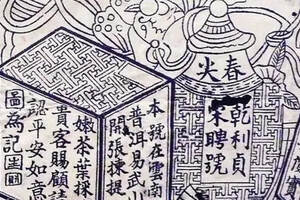 春尖
乾利貞
宋聘號
本號在雲南
普洱易武山
開張揀提
嫩茶葉採
貴客賜顧請
認平安如意
圖為記